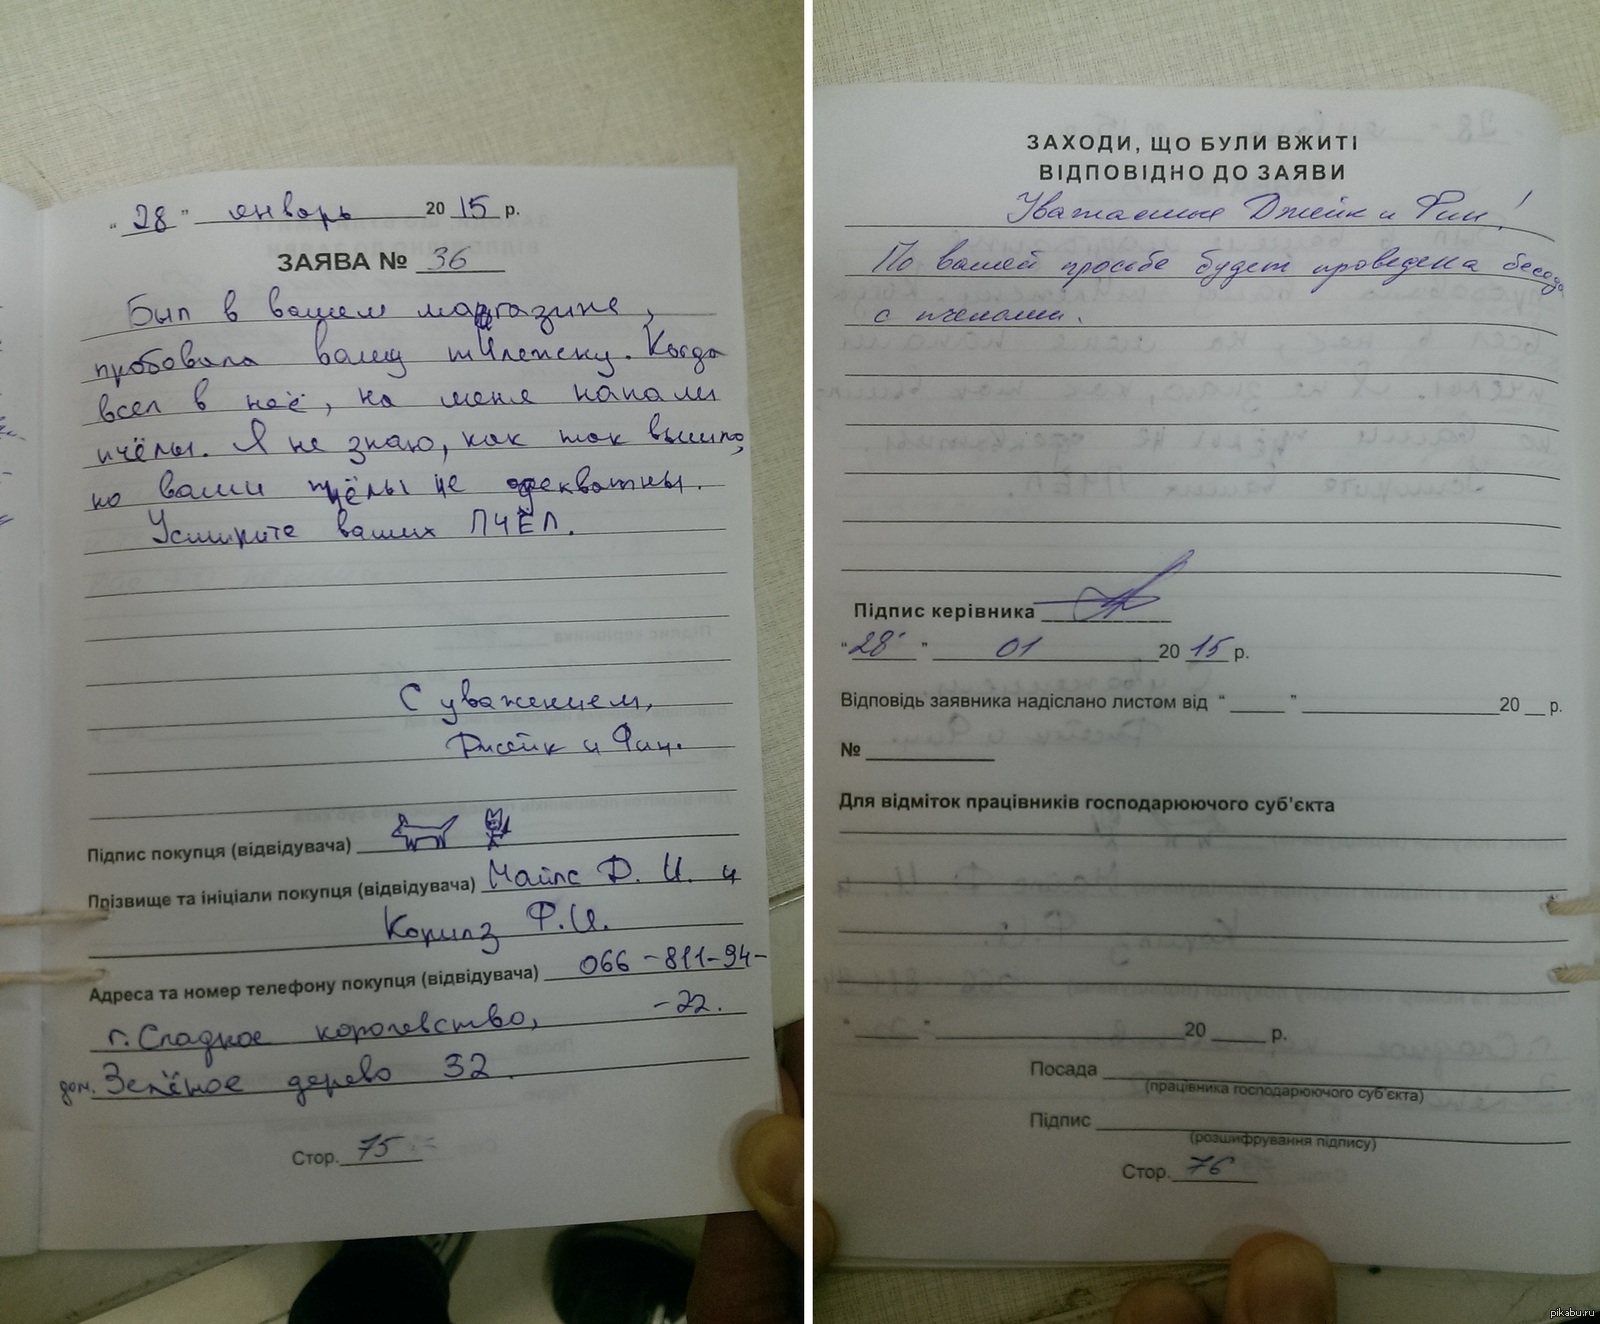 " 28 " январь 20 15 р.
ЗАЯВА № 36
Был в вашем магазине,
пробовала вашу тИлежку. Когда
всел в неё, на меня напали
пчёлы. Я не знаю, как так вышло,
но ваши пчёлы не адекватны.
Усмирите ваших ПЧЁЛ.
С уважением,
Джейк и Фин.
Підпис покупця (відвідувача)
Прізвище та ініціали покупця (відвідувача) Майлс Д. И. и
Корилз Ф.И.
Адреса та номер телефону покупця (відвідувача) 066-811-94-
г. Сладкое королевство, -22.
дом. Зелёное дерево 32.
Стор. 75
ЗАХОДИ, ЩО БУЛИ ВЖИТІ
ВІДПОВІДНО ДО ЗАЯВИ
Уважаемые Джейк и Фин!
По вашей просьбе будет проведена беседа
с пчелами.
Підпис керівника
" 28 " 01 20 15 р.
Відповідь заявника надіслано листом від " " 20 р.
№
Для відміток працівників господарюючого суб'єкта
" " 20 р.
Посада
(працівника господарюючого суб'єкта)
Підпис
(розшифрування підпису)
Стор. 76
pikabu.ru